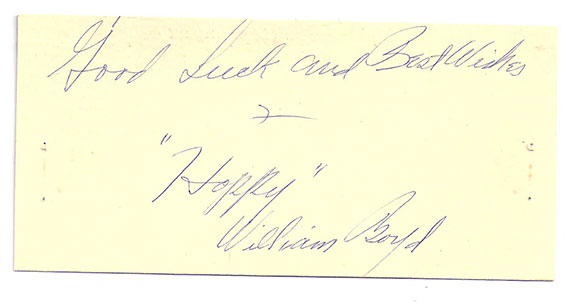 Good Luck and Best Wishes
"Hoppy"
William Boyd